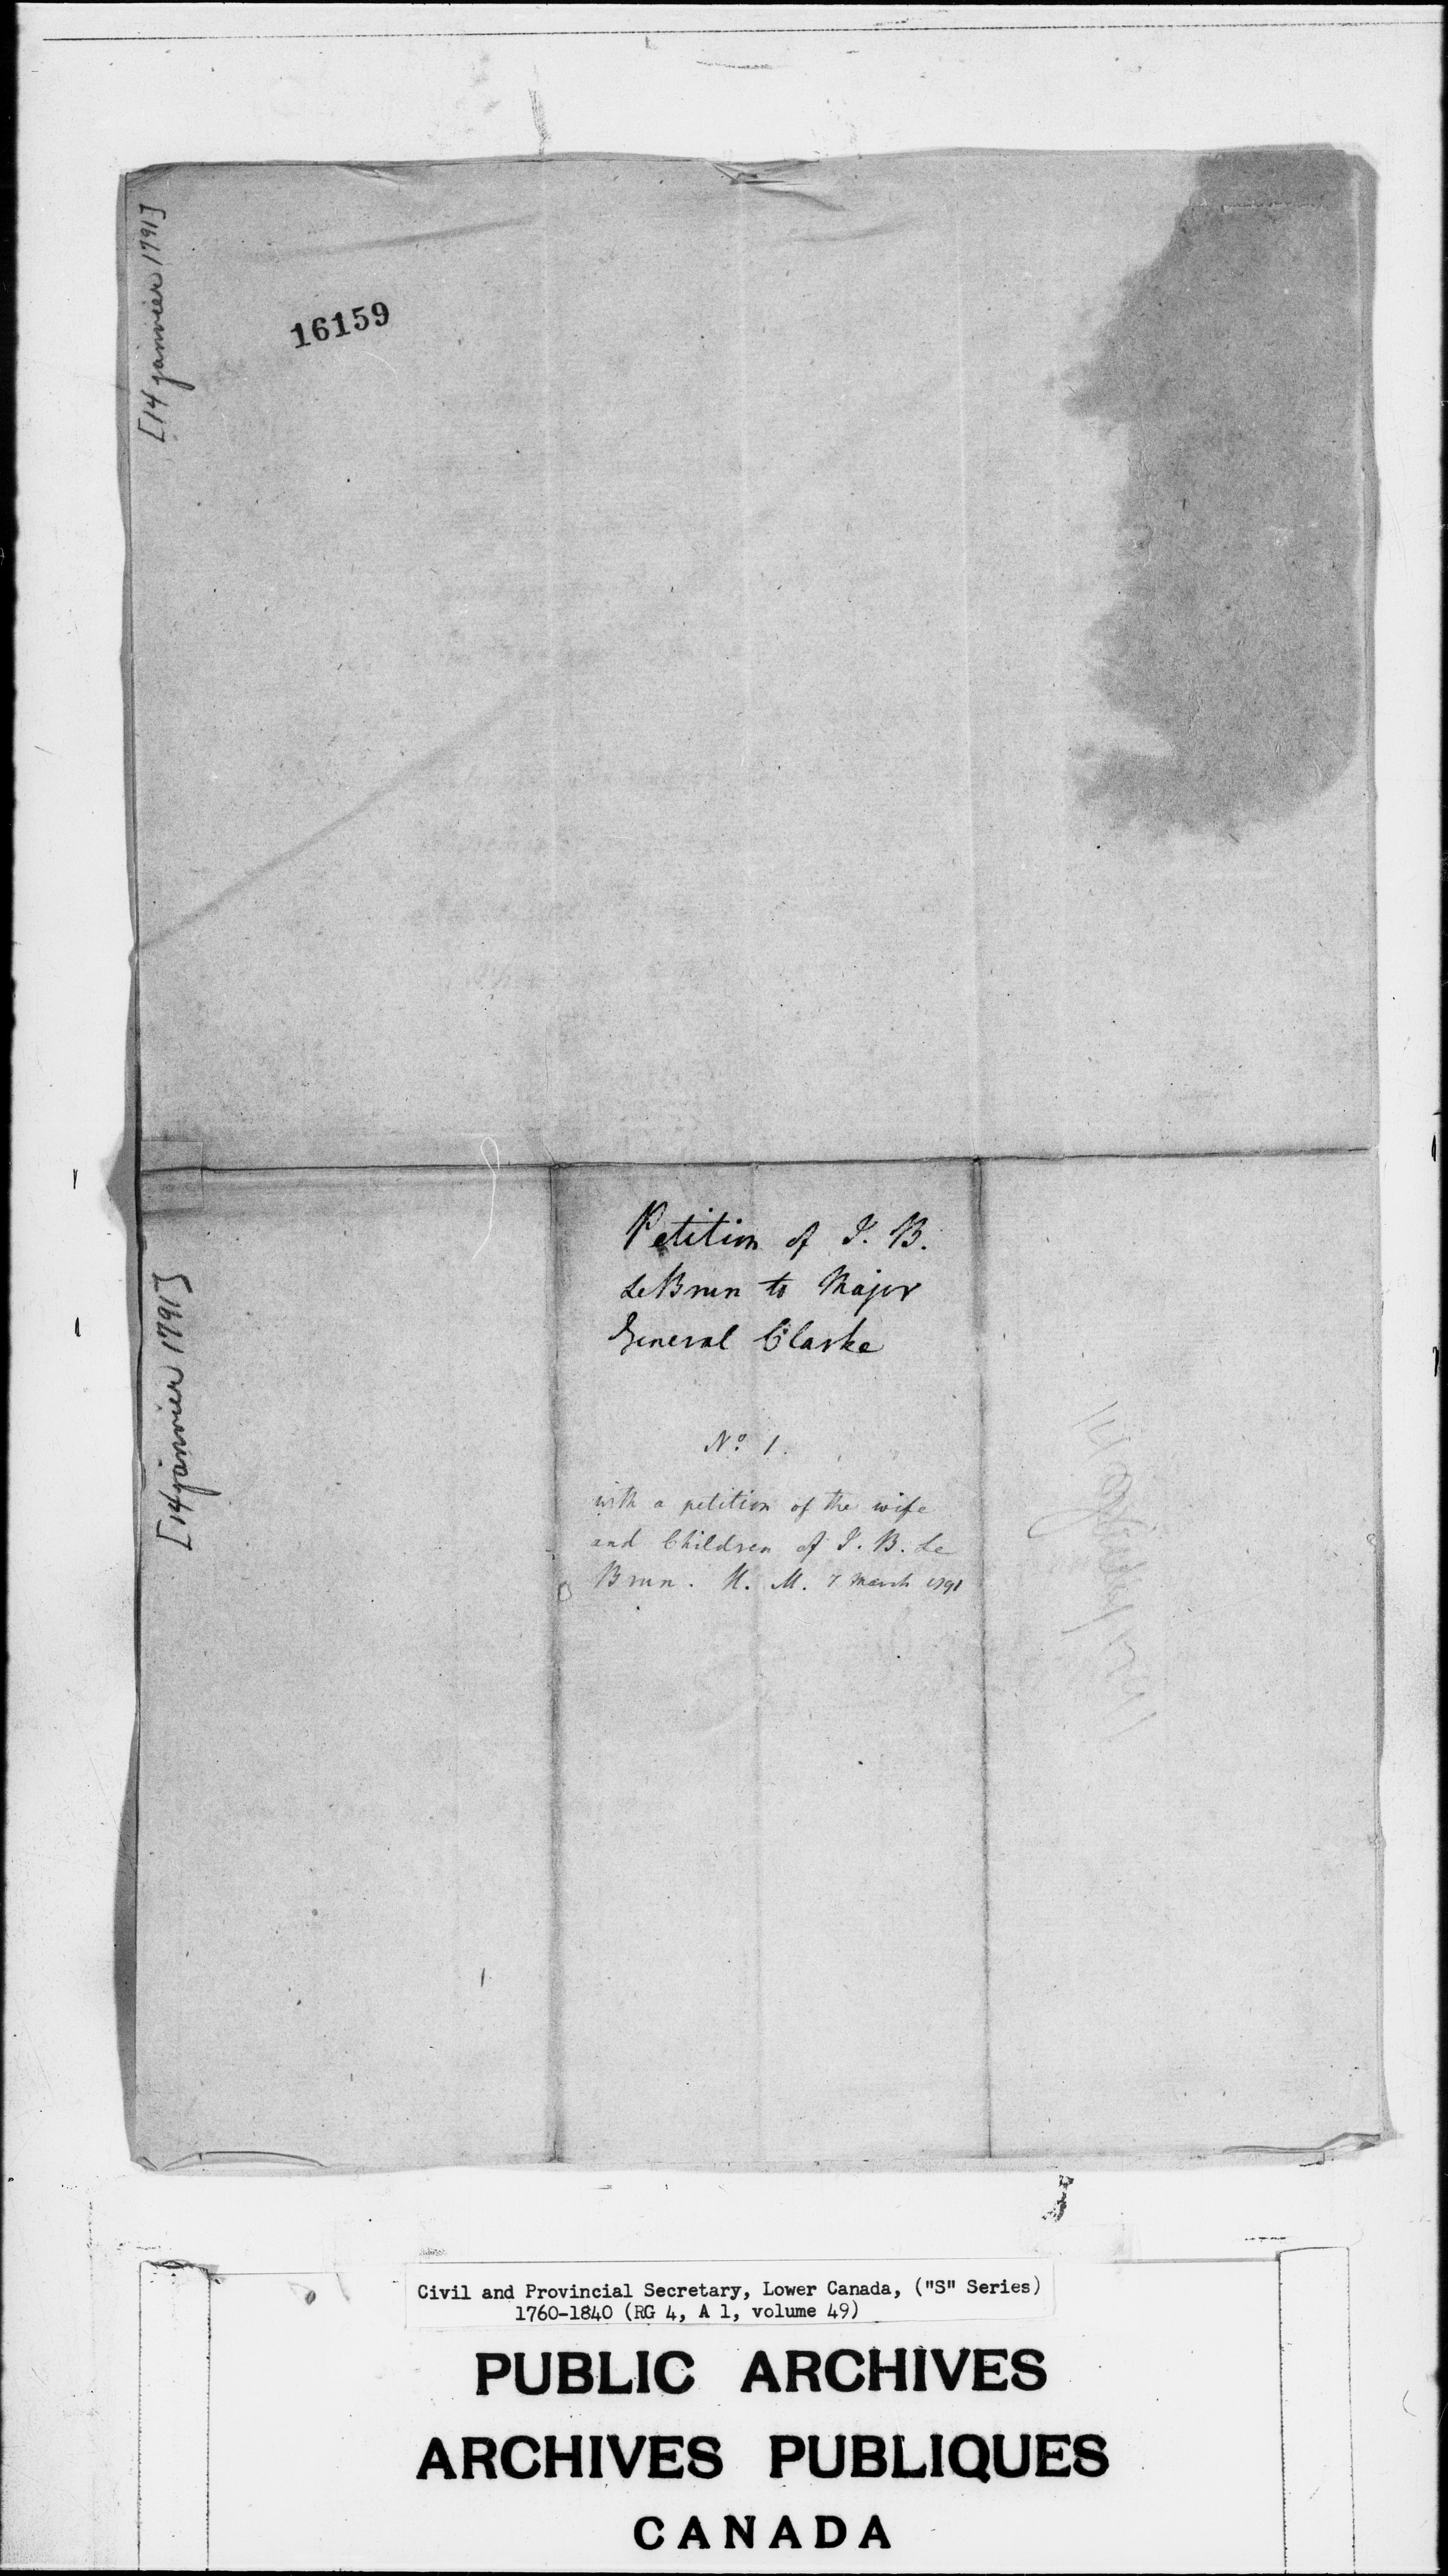 [14 janvier 1791]
16159
Petition of J. B.
LeBrun to Major
General Clarke
No. 1.
with a petition of the wife
and Children of J. B. Le
Brun. H. M. 7 March 1791
[14 janvier 1791]
Civil and Provincial Secretary, Lower Canada, ("S" Series)
1760-1840 (RG 4, A 1, volume 49)
PUBLIC ARCHIVES
ARCHIVES PUBLIQUES
CANADA